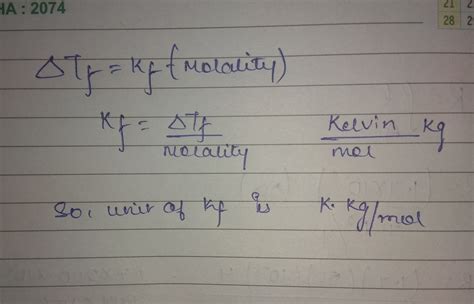 HA : 2074
21
28 2
ΔTf = Kf (molality)
Kf = ΔTf / molality Kelvin Kg / mol
So, unit of Kf is K. Kg/mol